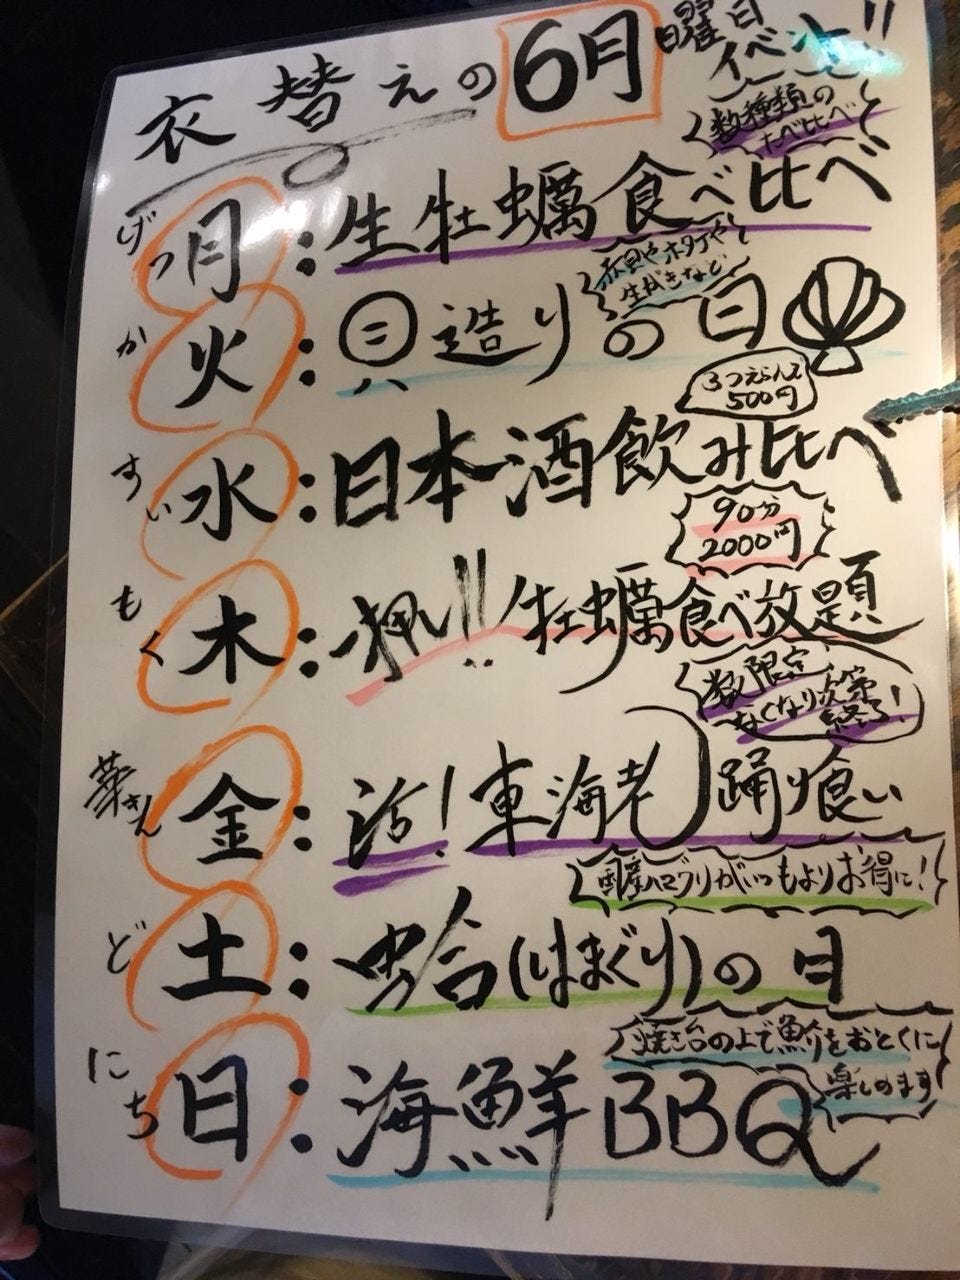 衣替えの6月曜日イベント!!
数種類の
たべ比べ
げつ 月：生牡蠣食べ比べ
赤貝やホタテや
生武きなど
か 火：貝造りの日
3つえらんで
500円
すい 水：日本酒飲み比べ
90分
2000円
もく 木：一押し!!牡蠣食べ放題
数限定
なくなり次第
終了！
華きん 金：活！車海老踊り食い
国産ハマグリがいつもよりお得に！
ど 土：蛤(はまぐり)の日
焼き台の上で魚介をおとくに
楽しめます
にち 日：海鮮BBQ